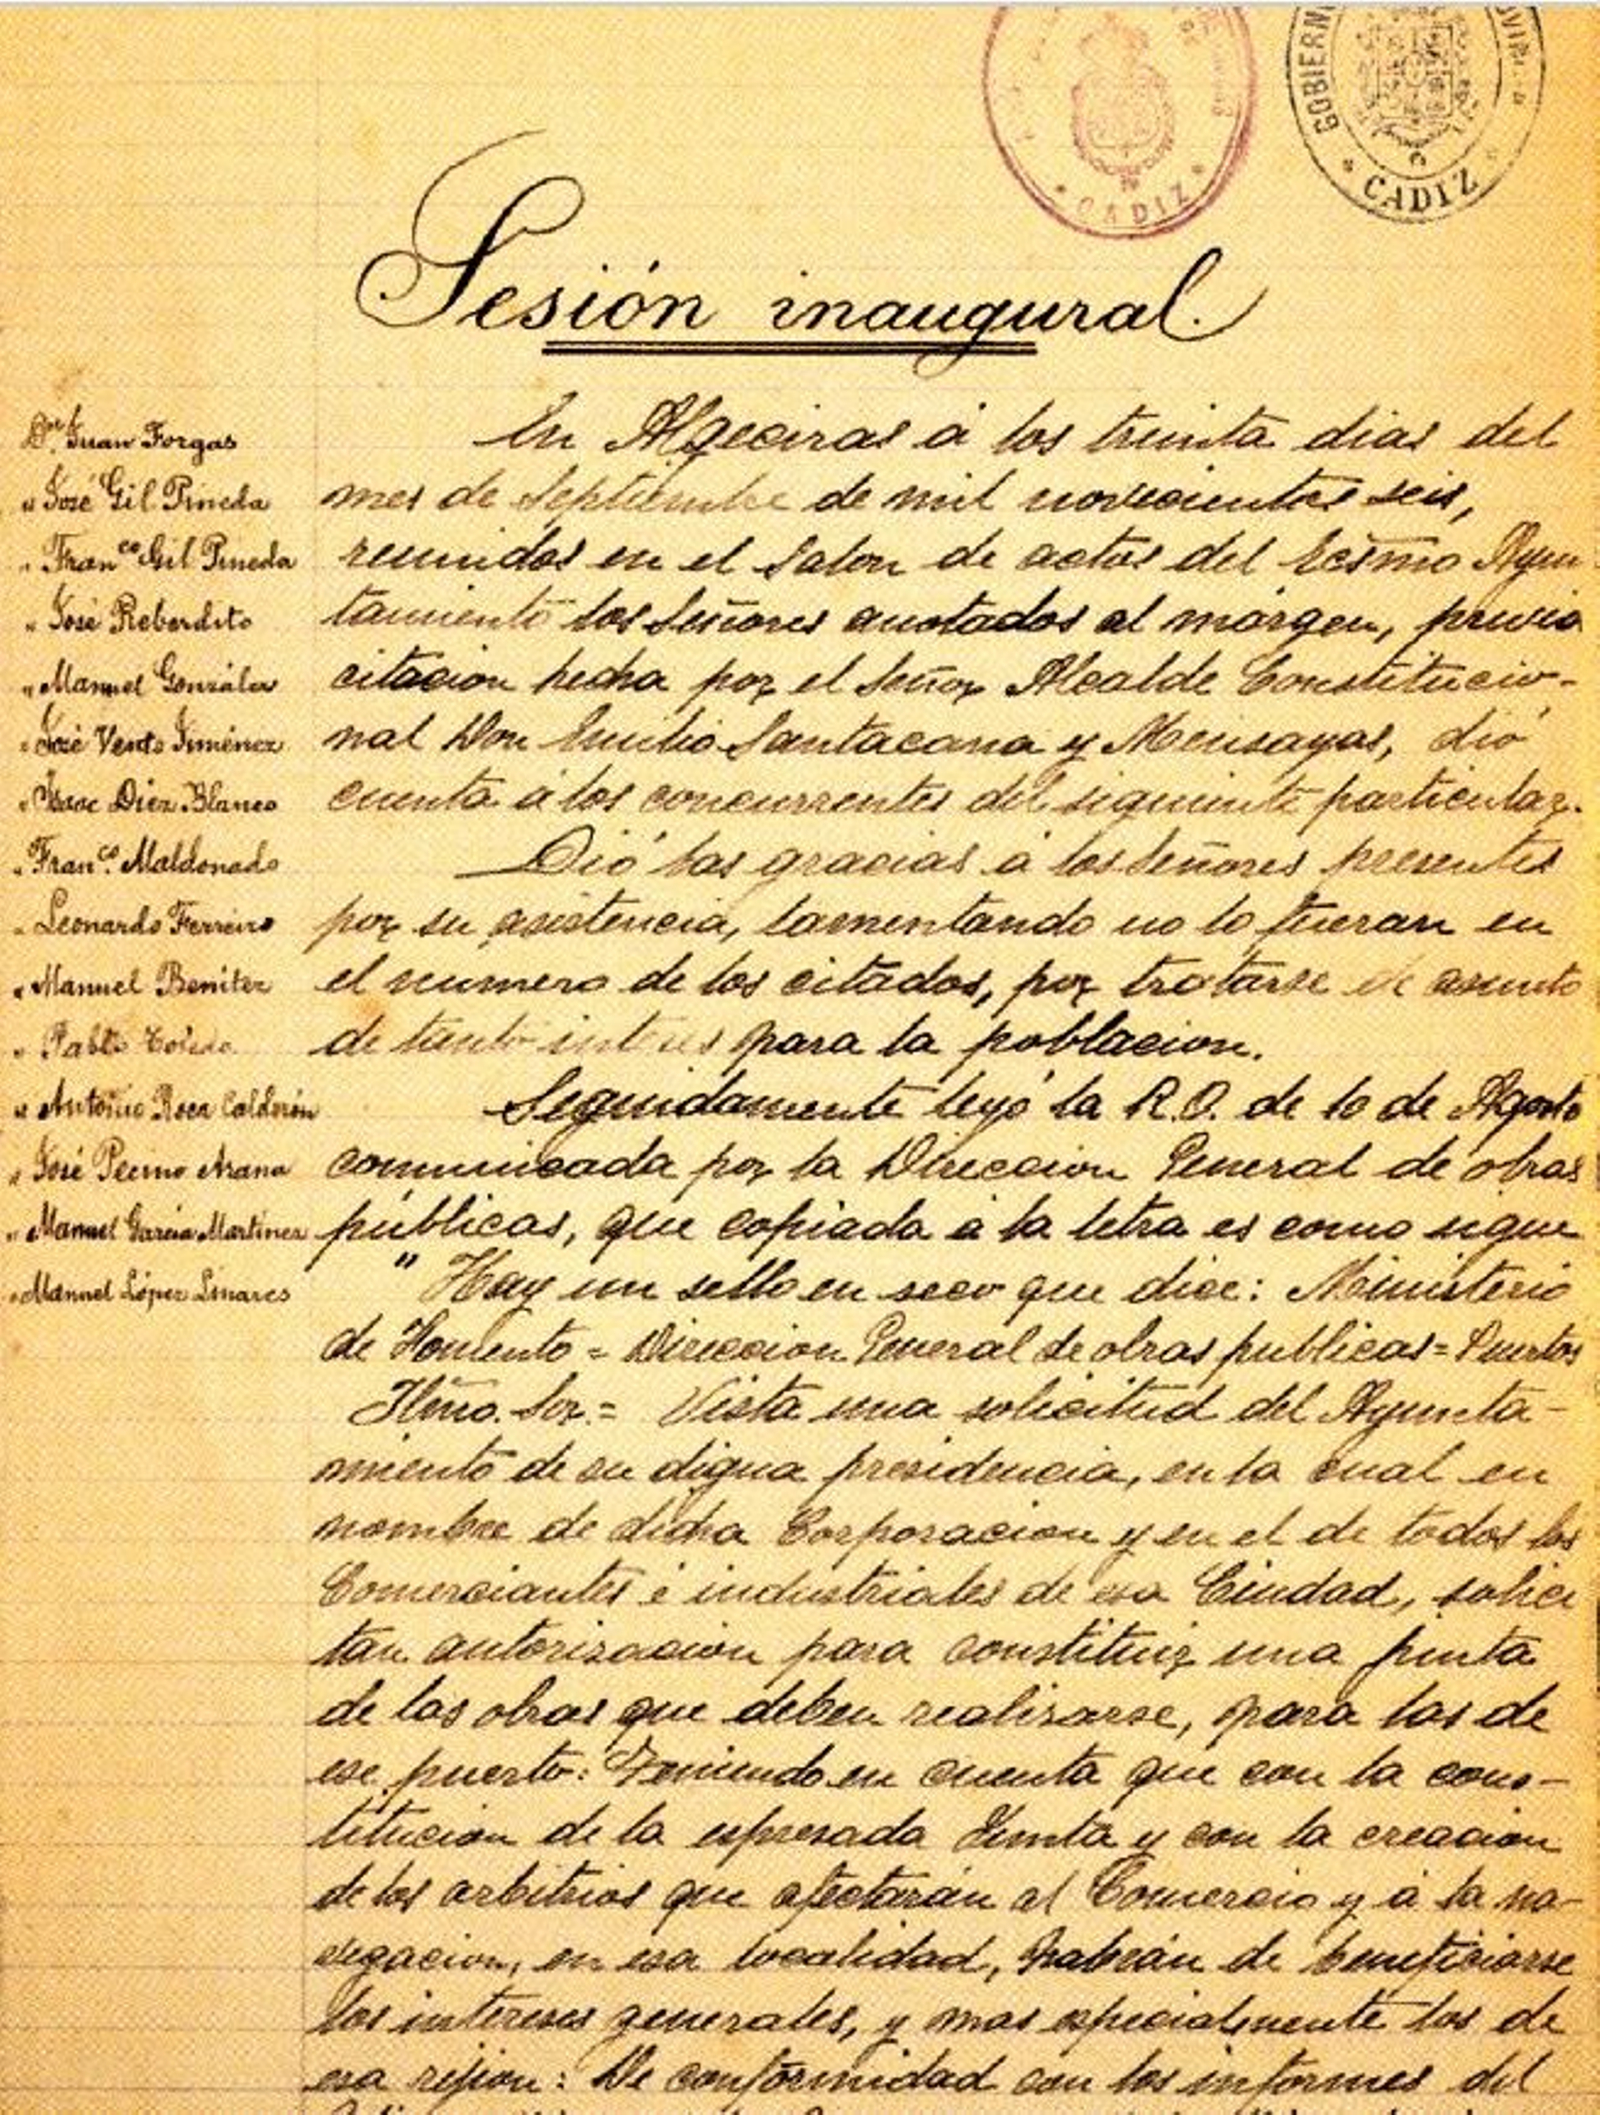 GOBIERN
CADIZ
CADIZ
Sesión inaugural.
Dn. Juan Forgas
" José Gil Pineda
" Franco Gil Pineda
" José Reberdito
" Manuel González
" José Vento Jiménez
" Isaac Diez Blanco
" Franco. Maldonado
" Leonardo Ferreiro
" Manuel Benitez
" Pablo Toledo
" Antonio Roca Calderón
" José Pecino Arana
" Manuel García Martínez
" Manuel López Linares
En Algeciras á los treinta dias del
mes de Septiembre de mil novecientos seis,
reunidos en el Salon de actos del Ecsmo Ayun
tamiento los Señores anotados al márgen, previa
citacion hecha por el Señor Alcalde Constitucio-
nal Don Emilio Santacana y Mensayas, dió
cuenta á los concurrentes del siguiente particular.
Dió las gracias á los Señores presentes
por su asistencia, lamentando no lo fueran en
el numero de los citados, por tratarse de asunto
de tanto interes para la poblacion.
Seguidamente leyó la R.O. de 10 de Agosto
comunicada por la Direccion General de obras
públicas, que copiada á la letra es como sigue
" Hay un sello en seco que dice: Ministerio
de Fomento = Direccion General de obras publicas = Puertos
Iltmo. Sor. = Vista una solicitud del Ayunta-
miento de su digna presidencia, en la cual en
nombre de dicha Corporacion y en el de todos los
Comerciantes é industriales de esa Ciudad, solici
tan autorizacion para constituir una junta
de las obras que deben realizarse, para las de
ese puerto: Teniendo en cuenta que con la cons-
titucion de la espresada Junta y con la creacion
de los arbitrios que afectarán al Comercio y á la na-
vegacion, en esa localidad, habrán de beneficiarse
los intereses generales, y mas especialmente los de
esa rejion: De conformidad con los informes del